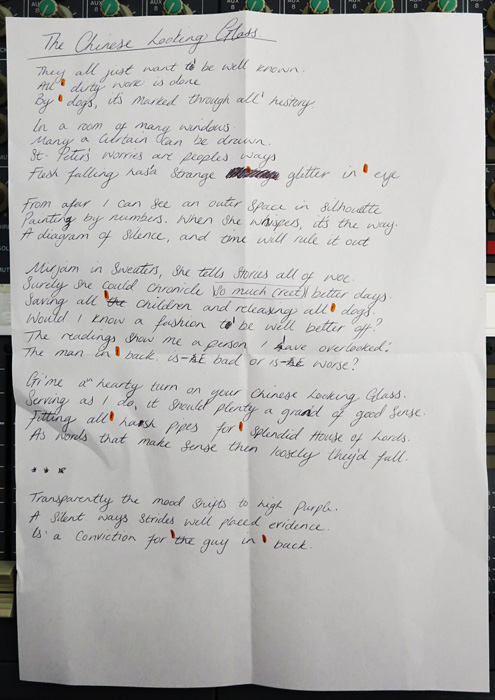 The Chinese Looking Glass
They all just want to be well known.
All dirty work is done
By dogs, it's marked through all history.
In a room of many windows
Many a curtain can be drawn.
St. Peter's worries are peoples ways
Flesh falling has a strange glitter in eye
From afar I can see an outer space in silhouette
Painting by numbers. When she whispers, it's the way.
A diagram of silence, and time will rule it out
Mirjam in Sweaters, she tells stories all of woe.
Surely she could chronicle (so much (rect)) better days.
Saving all the children and releasing all dogs.
Would I know a fashion to be well better off?
The readings show me a person I have overlooked:
The man in back. is-HE bad or is-HE worse?
Gi'me a hearty turn on your Chinese Looking Glass.
Serving as I do, it should plenty a grand of good sense.
Fitting all harsh pipes for splendid House of Lords.
As words that make sense then loosely they'd fall.
* * *
Transparently the mood shifts to high purple.
A silent ways strides well placed evidence.
Is a conviction for the guy in back.
AUX
AUX
AUX
AUX
8